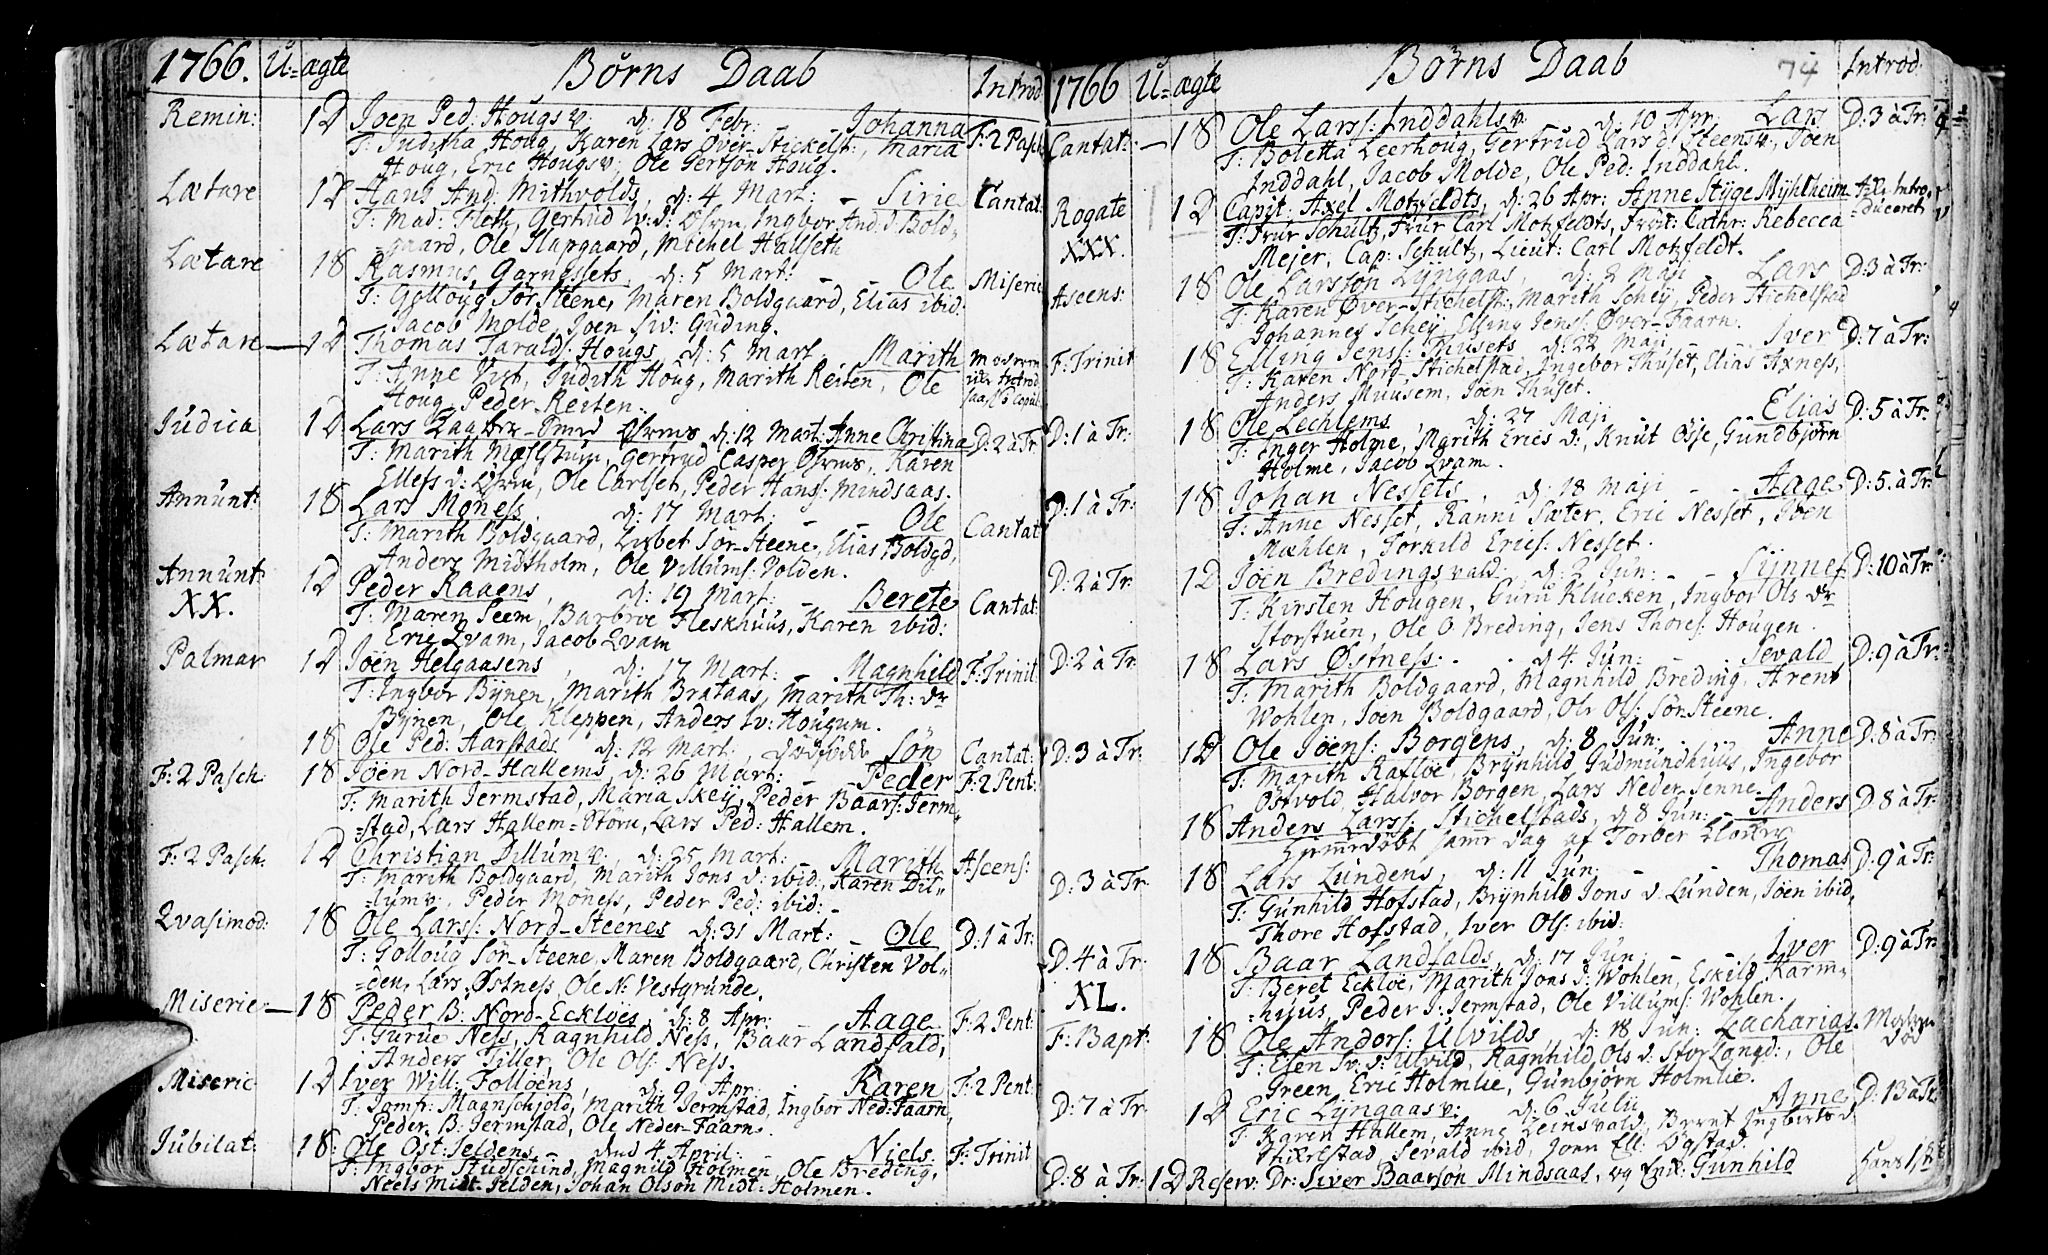 1766. U= ægte Börns Daab Introd
Remin: 1 D Joen Ped: Hougs v. d: 18 Febr: Johanna F: 2 Pasch
T: Juditha Houg, Karen Lars Över-Stickelst:, Maria
Houg, Eric Hougsv:, Ole Gertsön Houg.
Lætare 1 D Hans And: Mithvolds, d: 4 Mart: - Sirie Cantat:
T: Mad: Fleth, Gertrud Iv: D: Ingbor And: D. Bold-
=gaard, Ole Slapgaard, Michel Hallseth
Lætare 1 S Rasmus Garnessets d: 5 Mart: - Ole Miseric
T: Golloug Sör Steene, Maren Boldgaard, Elias ibid:
Jacob Molde, Joen Siv: Guding.
Lætare 1 D Thomas Taralds: Hougs d: 5 Mart. Marith
T: Anne Vist, Judith Houg, Marith Reiten, Ole
Houg, Peder Reiten.
Judica 1 D Lars d: 12 Mart: Anne Christina D: 2 à Tr
T: Marith Mæhlhum, Gertrud Casper Karen
Ellefs d: Ole Carlset, Peder Hans: Mindsaas.
Annunt: 1 S Lars Moness, d: 17 Mart: - Ole Cantat
T: Marith Boldgaard, Lisbet Sör-Steene, Elias Boldgd,
Anders Midtholm, Ole Villums: Volden.
Annunt: 1 D Peder Raaens, d: 19 Mart: - Berete Cantat:
XX. T: Maren Seem, Barbroe Fleskhuus, Karen ibid:
Eric Qvam, Jacob Qvam
Palmar 1 D Jöen Helgaasens, d: 17 Mart. - Magnhild F: Trinit:
T: Ingbor Bÿnen, Marith Brataas, Marith Th: dr
Bÿnen, Ole Kleppen, Anders Iv: Hougum.
1 S Ole Ped: Aarstads d: 12 Mart: dödföde Sön Cantat:
F: 2 Pasch: 1 S Jöen Nord-Hallems, d: 26 Mart: - Peder F: 2 Pent:
T: Marith Jermstad, Maria Skeÿ, Peder Baars: Jerm-
=stad, Lars Hallem=Storu, Lars Ped: Hallem.
F: 2 Pasch: 1 D Christian Dillumv:, d: 25 Mart: Marith Ascens:
T: Marith Boldgaard, Marith Jons D: ibid:, Karen Dil-
=lumv:, Peder Möness, Peder Ped: ibid:
Qvasimod: 1 S Ole Lars: Nord-Steenes d: 31 Mart: - Ole D: 1 à Tr:
T: Golloug Sör-Steene, Maren Boldgaard, Christen Vol-
=den, Lars Östness, Ole N: Vestgrunde.
Miserie: 1 S Peder B: Nord-Eckloes, d: 8 Apr: Aage F: 2 Pent:
T: Gurue Ness, Ragnhild Ness, Baar Landfald,
Anders Tiller, Ole Ols: Ness.
Miseric 1 D Iver Will: Folloens, d: 9 Apr: - Karen F: 2 Pent:
T: Jomfr: Magnschiold, Marith Jermstad, Ingbor Ned: Faarn,
Peder B: Jermstad, Ole Neder-Faarn.
Jubilat: 1 S: Ole Ost: Jeldens dend 4 April: - Niels F: Trinit
T: Ingbor Studschind, Magnild Holmen, Ole Breding,
Neels Midt-Jelden, Johan Olson Midt-Holmen.
1766 U= ægte Börns Daab 74 Introd.
Cantat: 1 S Ole Lars: Inddahlsv d: 10 Apr: Lars D: 3 à Tr:
T: Boletta Leerhoug, Gertrud Lars d: Steensv:, Joen
Inddahl, Jacob Molde, Ole Ped: Inddahl.
Rogate 1 D Capit: Axel Motzfeldts, d: 26 Apr: Anne Stÿge Mÿhlheim
XXX. T: Frur Schultz, Frur Carl Motzfeldts, Frök: Cathr: Rebecca
Mejer, Cap: Schultz, Lieut: Carl Motzfeldt.
Ascens: 1 S Ole Larssön Lyngaas, d: 2 Maji Lars D: 3 à Tr:
T: Karen Över-Stichelst:, Marith Scheÿ, Peder Stichelstad
Johannes Scheÿ, Elling Jens: Över-Faarn.
F: Trinit 1 S Elling Jens: Thusets d: 22 Maji Iver D: 7 à Tr:
T: Karen Nord-Stichelstad, Ingebor Thuset, Elias Axness,
Anders Muusem, Jöen Thuset.
D: 1 à Tr: 1 S Ole Lechlems, d: 27 Maji Elias D: 5 à Tr:
T: Inger Holme, Marith Erics d:, KnutÖsse, Gundbjörn
Holme, Jacob Qvam.
D: 1 à Tr: 1 S Johan Nessets, d: 18 Maji - - Aage D: 5. à Tr:
T: Anne Nesset, Ranni Sæter, Eric Nesset, Joen
Mæhlen, Torkild Erics: Nesset.
D: 2 à Tr: 1 D Jöen Bredings vald: d: 2 Jun: - Sÿnnef D: 10 à Tr:
T: Kirsten Hougen, Guru Klucken, Ingbor Ols dr
Storstuen, Ole O Breding, Jens Thores: Hougen.
D: 2 à Tr. 1 S Lars Östness: - - d: 4 Jun: - Sevald D: 9 à Tr:
T: Marith Boldgaard, Magnhild Breding, Arent
Wohlen, Joen Boldgaard, Ole Ols: Sönsteene.
D: 3 à Tr: 1 D Ole Jöens: Borgens d: 8 Jun: - Anne D: 8 à Tr:
T: Marith Rafloe, Brÿnhild Gudmundhuus, Ingebor
Östvold, Halvor Borgen, Lars Neder-Jenne.
1 S Anders Lars: Stichelstads, d: 8 Jun: - Anders D: 8 à Tr:
Hiemedöbt samme Dag af Torber Klocker
D: 3 à Tr: 1 S Lars Lundens, d: 11 Jun: - - Thomas D: 9 à Tr:
T: Gunhild Hofstad, Brÿnhild Jons d. Lunden, Jöen ibid,
Thore Hofstad, Iver Ols: ibid:
D: 4 à Tr: 1 S Baar Landfalds, d: 17 Jun: - Iver D: 9 à Tr:
XL. T: Beret Eckloe, Marith Jons D: Wohlen, Eskild Karm-
=huus, Peder J: Jermstad, Ole Villums: Wohlen.
F: Bapt: 1 S Ole Anders: Ulvilds, d: 18 Jun: Zacharias. Moderen död
T: Elen Iv: D: Ulvild, Ragnhild Ols d: StorLangd:, Ole
Green, Eric Holmlie, Gunbjörn Holmlie.
D: 7 à Tr: 1 D Eric Lÿngaasv: d: 6 Julii Anne D: 13 à Tr:
T: Karen Hallem, Anne Leinsvald, Berret
Stikelstad, Sevald ibid, Jonn Ell:
D: 8 à Tr: 1 D Reserv: Dr: Siver Baarsön Mindsaas, og Enk: Gunhild